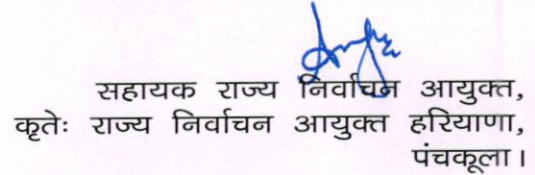 सहायक राज्य निर्वाचन आयुक्त,
कृतेः राज्य निर्वाचन आयुक्त हरियाणा,
पंचकूला।